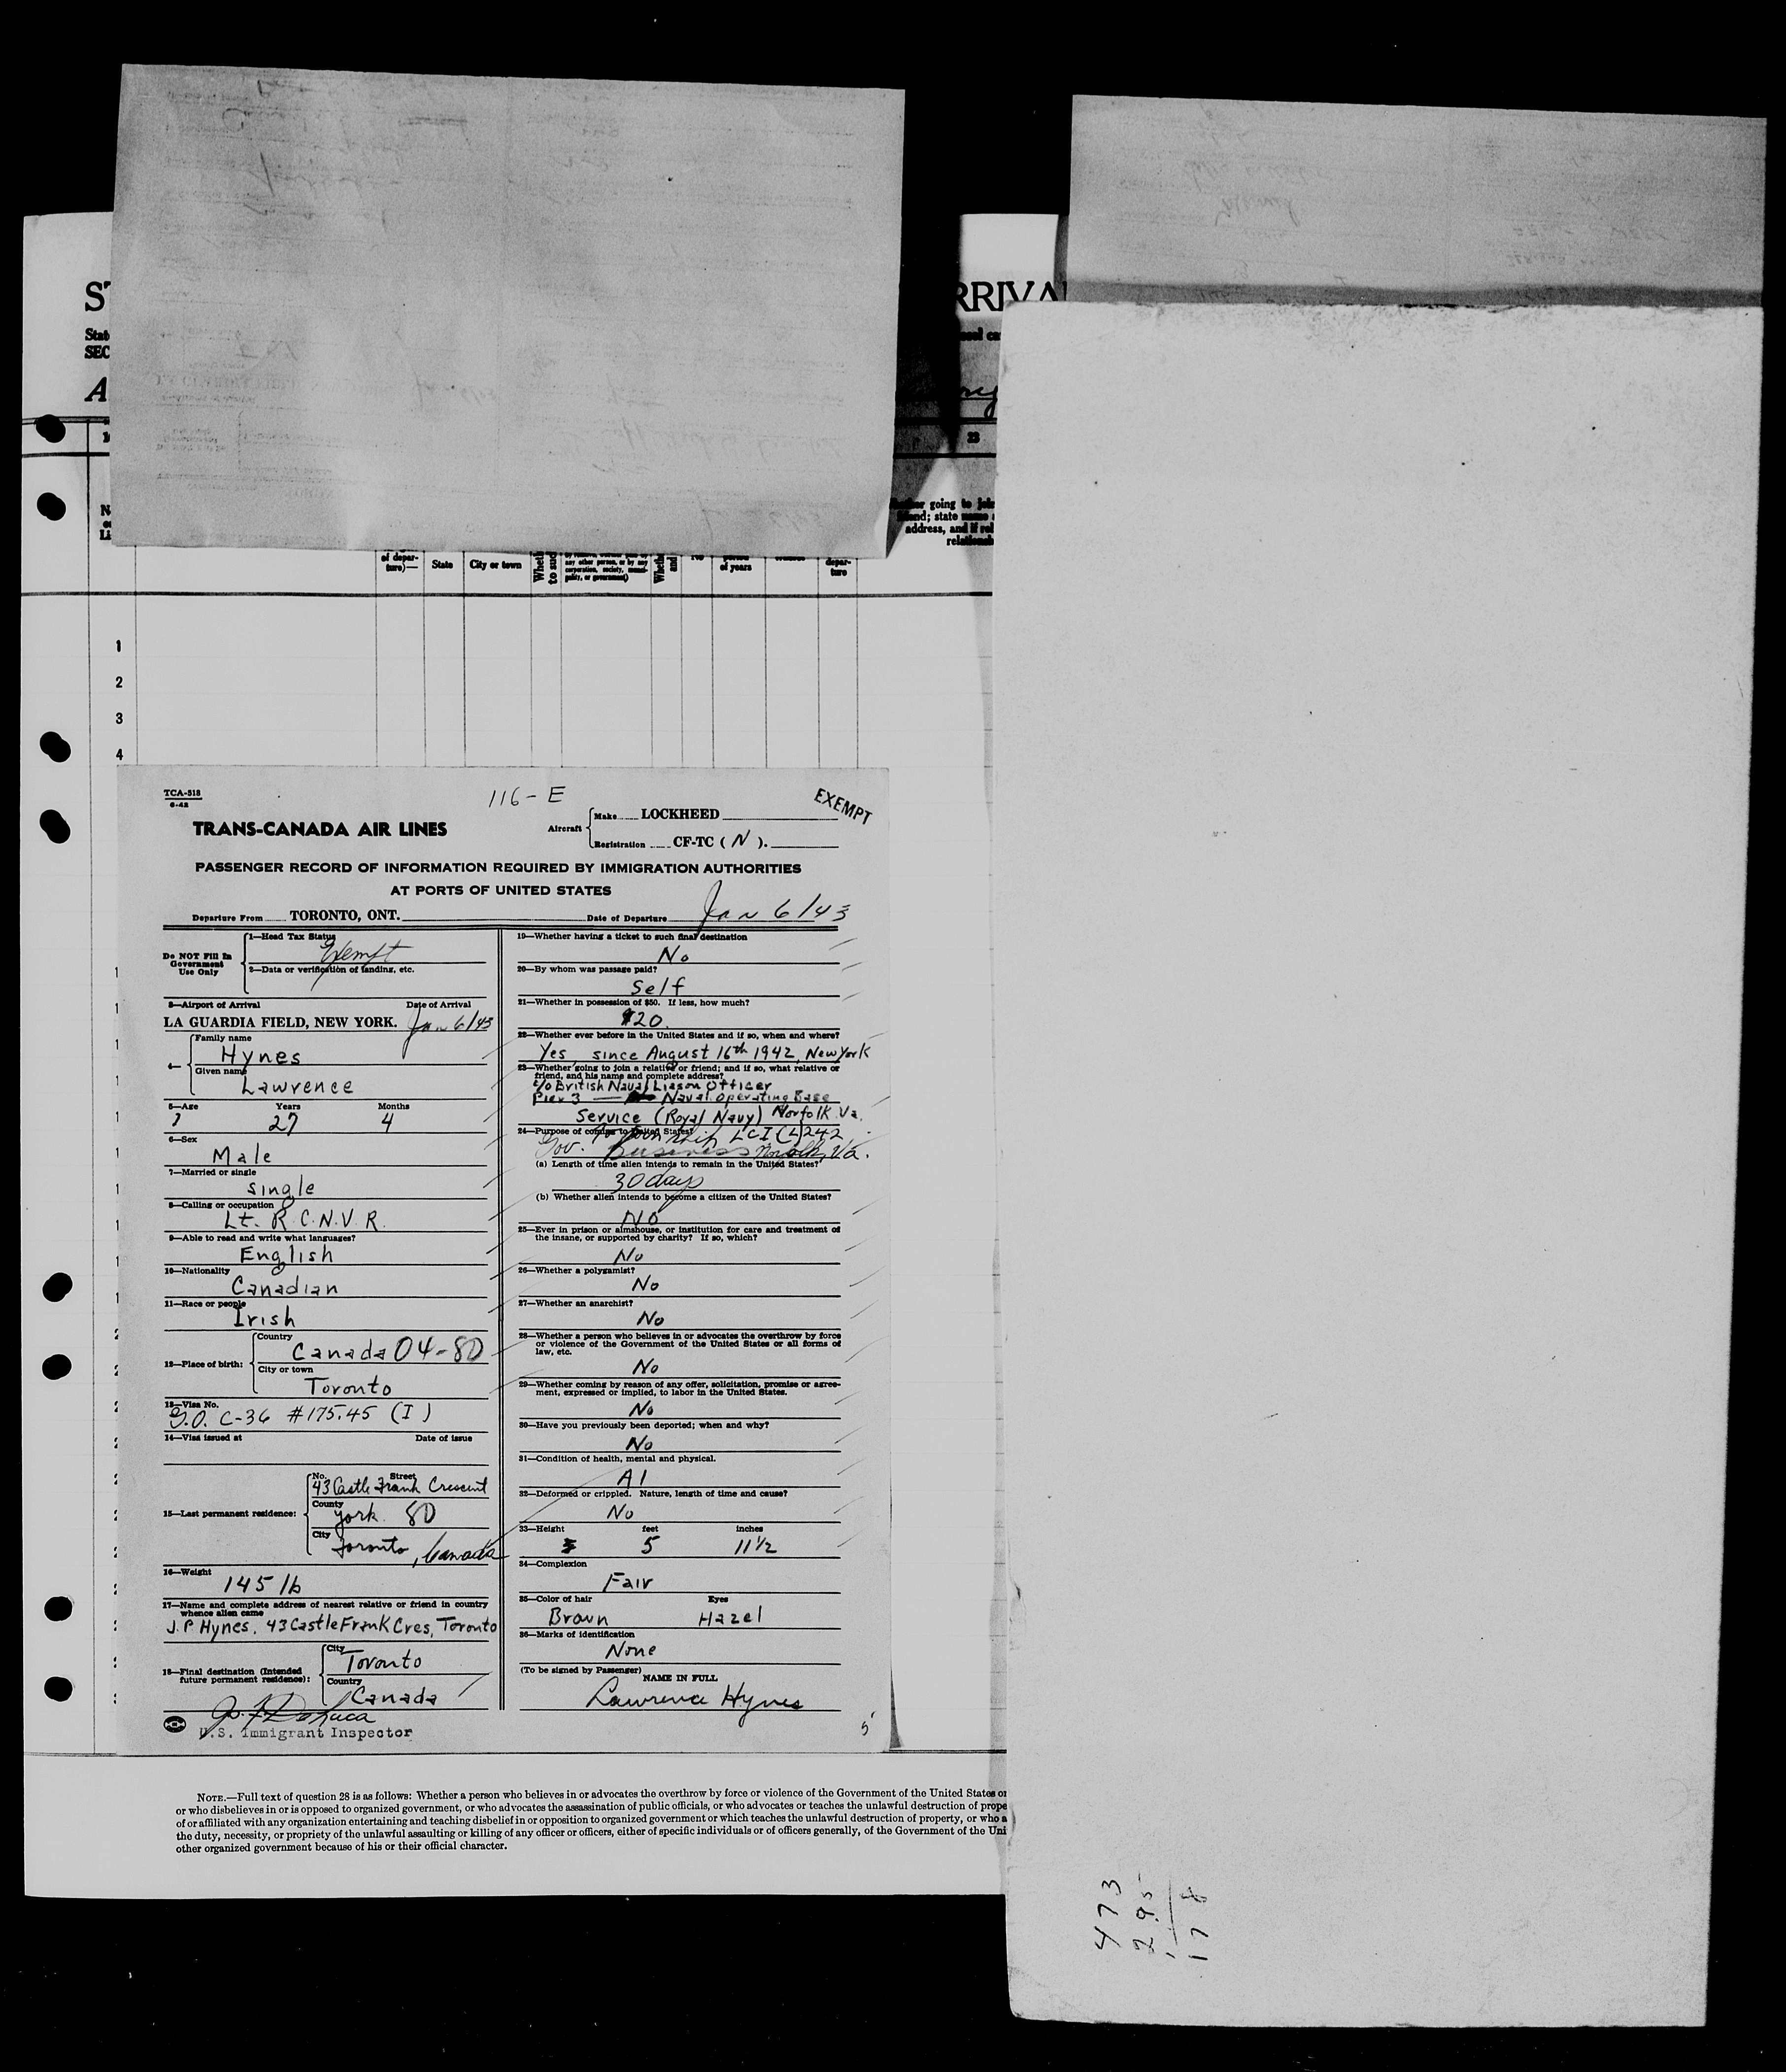 RRIVA
23
going to join
end; state name
address, and if rel
relationsh
of depar-
ture)—
State
City or town
any other person, or by any
corporation, society, munici-
pality, or government)
of years
depar-
ture
1
2
3
4
TCA-518
6-42
116-E
EXEMPT
TRANS-CANADA AIR LINES
Aircraft
Make LOCKHEED
Registration CF-TC (N).
PASSENGER RECORD OF INFORMATION REQUIRED BY IMMIGRATION AUTHORITIES
AT PORTS OF UNITED STATES
Departure From TORONTO, ONT. Date of Departure Jan 6/43
Do NOT Fill In
Government
Use Only
1—Head Tax Status
Exempt
2—Data or verification of landing, etc.
3—Airport of Arrival Date of Arrival
LA GUARDIA FIELD, NEW YORK. Jan 6/43
4—
Family name
Hynes
Given name
Lawrence
5—Age Years Months
27 4
6—Sex
Male
7—Married or single
Single
8—Calling or occupation
Lt. R.C.N.V.R.
9—Able to read and write what languages?
English
10—Nationality
Canadian
11—Race or people
Irish
12—Place of birth:
Country
Canada 04-80
City or town
Toronto
13—Visa No.
C-36 #175.45 (I)
14—Visa issued at Date of issue
15—Last permanent residence:
No. Street
43 Castle Frank Crescent
County
York 80
City
Toronto, Canada
16—Weight
145 lb
17—Name and complete address of nearest relative or friend in country
whence alien came
J.P Hynes, 43 Castle Frank Cres, Toronto
18—Final destination (Intended
future permanent residence):
City
Toronto
Country
Canada
U.S. Immigrant Inspector
19—Whether having a ticket to such final destination
No
20—By whom was passage paid?
Self
21—Whether in possession of $50. If less, how much?
$20.
22—Whether ever before in the United States and if so, when and where?
Yes, since August 16th 1942, New York
23—Whether going to join a relative or friend; and if so, what relative or
friend, and his name and complete address?
c/o British Naval Liason Officer
Pier 3 — Naval Operating Base
Service (Royal Navy) Norfolk Va.
24—Purpose of coming to United States?
To join ship LCI(L)242
Gov. Business Norfolk, Va.
(a) Length of time alien intends to remain in the United States?
30 days
(b) Whether alien intends to become a citizen of the United States?
No
25—Ever in prison or almshouse, or institution for care and treatment of
the insane, or supported by charity? If so, which?
No
26—Whether a polygamist?
No
27—Whether an anarchist?
No
28—Whether a person who believes in or advocates the overthrow by force
or violence of the Government of the United States or all forms of
law, etc.
No
29—Whether coming by reason of any offer, solicitation, promise or agree-
ment, expressed or implied, to labor in the United States.
No
30—Have you previously been deported; when and why?
No
31—Condition of health, mental and physical.
A1
32—Deformed or crippled. Nature, length of time and cause?
No
33—Height feet inches
5 11 1/2
34—Complexion
Fair
35—Color of hair Eyes
Brown Hazel
36—Marks of identification
None
(To be signed by Passenger)
NAME IN FULL
Lawrence Hynes
5
NOTE.—Full text of question 28 is as follows: Whether a person who believes in or advocates the overthrow by force or violence of the Government of the United States or
or who disbelieves in or is opposed to organized government, or who advocates the assassination of public officials, or who advocates or teaches the unlawful destruction of prope
of or affiliated with any organization entertaining and teaching disbelief in or opposition to organized government or which teaches the unlawful destruction of property, or who a
the duty, necessity, or propriety of the unlawful assaulting or killing of any officer or officers, either of specific individuals or of officers generally, of the Government of the Uni
other organized government because of his or their official character.
473
295
178